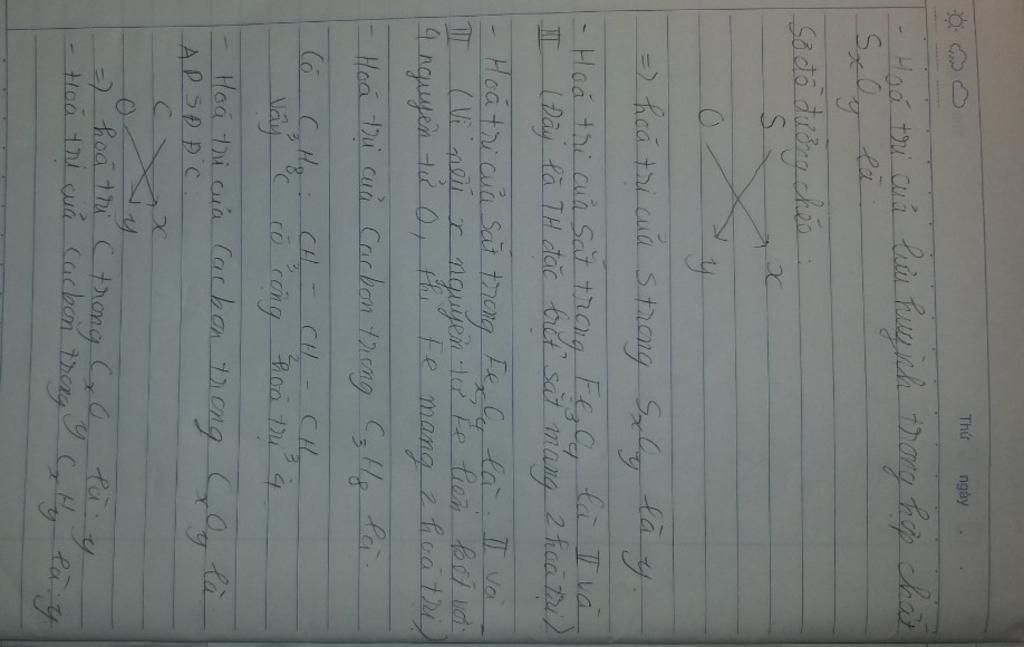 Thứ ngày
- Hoá trị của lưu huỳnh trong hợp chất
SxOy là:
Sơ đồ đường chéo:
S x
O y
=> hoá trị của S trong SxOy là y.
- Hoá trị của Sắt trong Fe3O4 là II và
III (Đây là TH đặc biệt sắt mang 2 hoá trị)
- Hoá trị của Sắt trong FexOy là: II và
III (Vì nếu x nguyên tử Fe liên kết với
y nguyên tử O, thì Fe mang 2 hoá trị)
- Hoá trị của Cacbon trong C3H8 là:
Có C3H8: CH3 - CH2 - CH3
Vậy C có cộng hoá trị 4.
- Hoá trị của Cacbon trong CxOy là
APSĐĐC:
C x
O y
=> hoá trị C trong CxOy là: y
- Hoá trị của Cacbon trong CxHy là: y